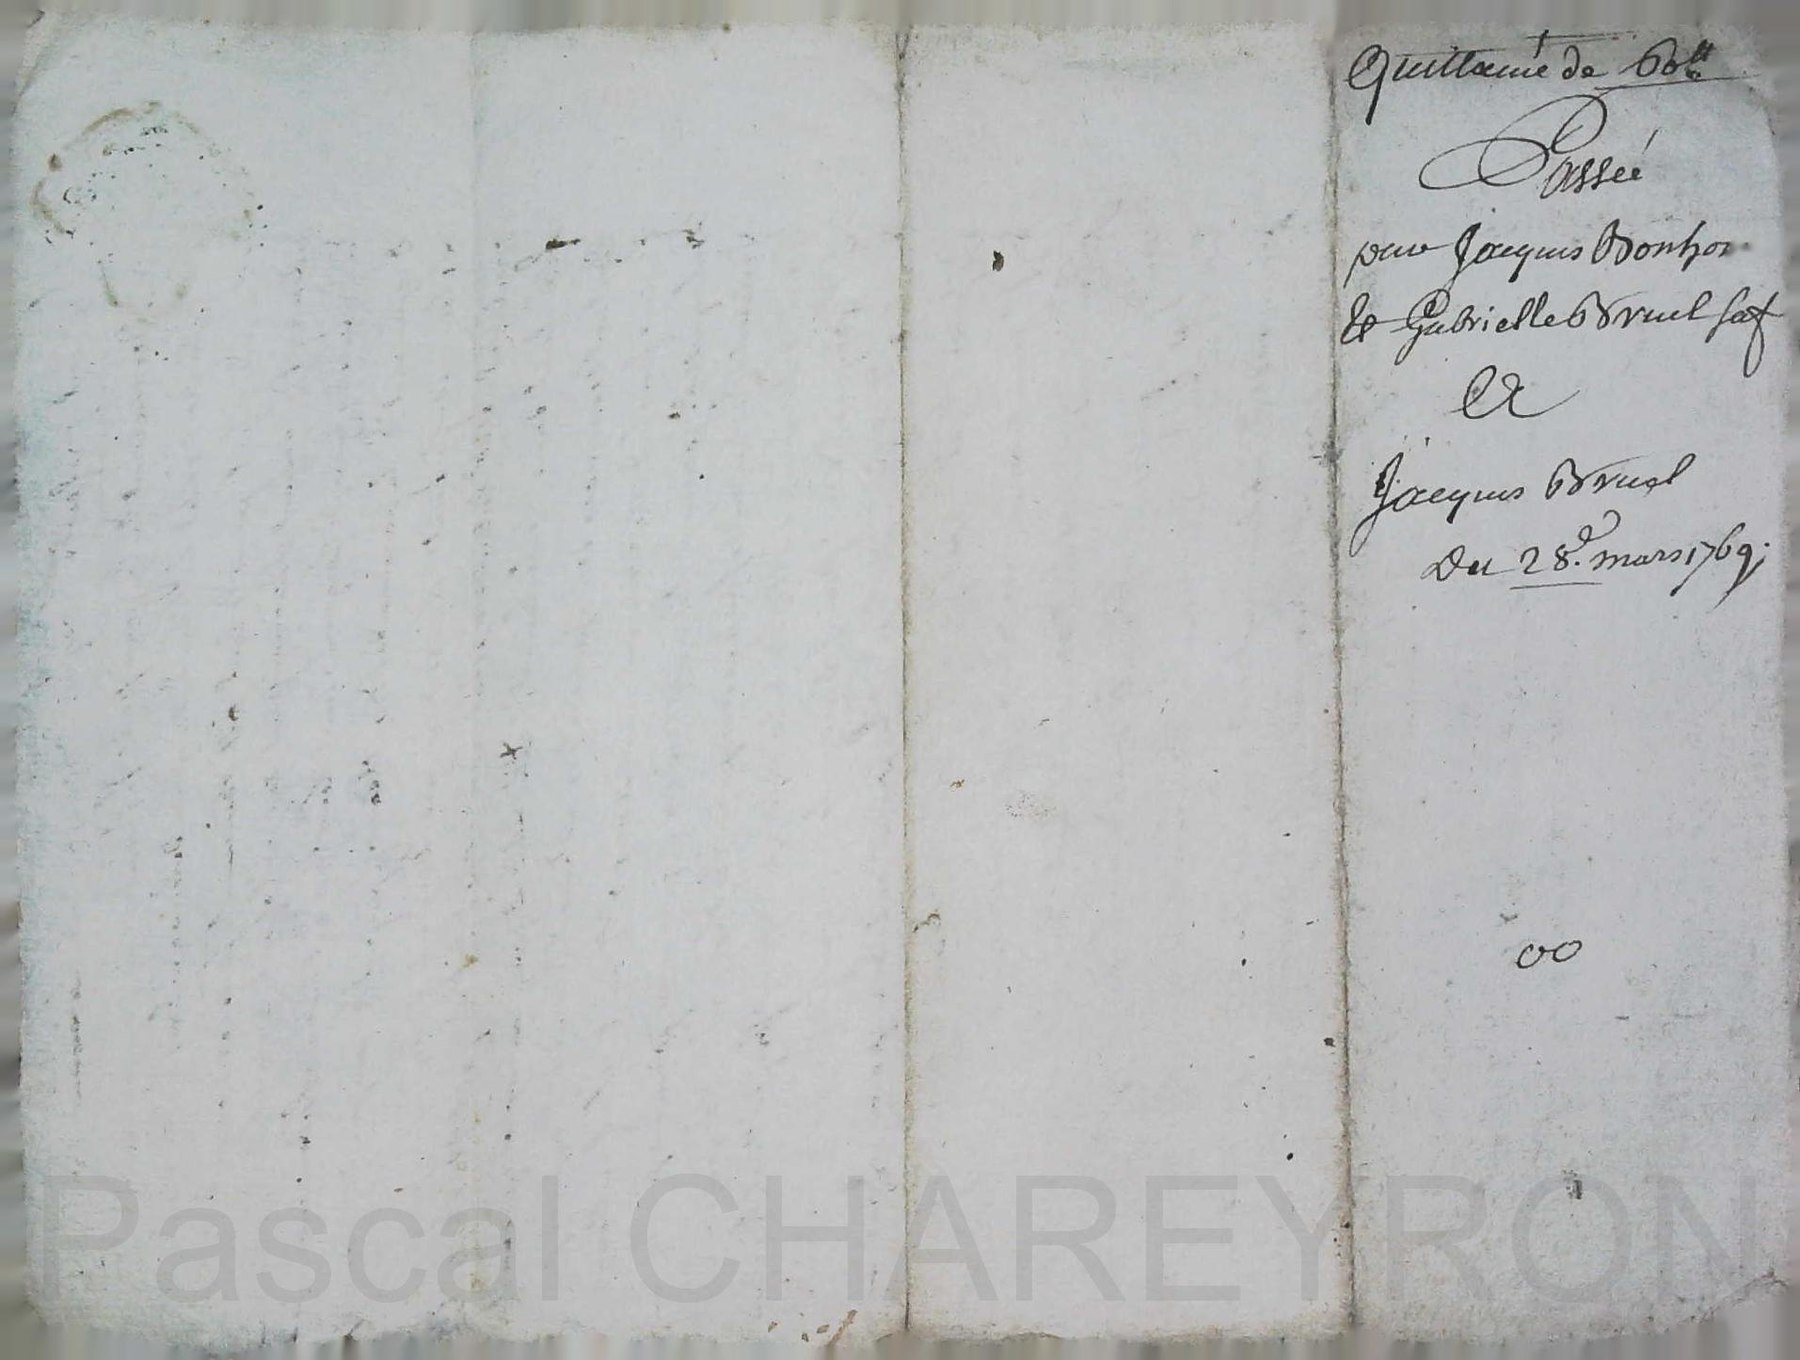 Quittance de 60 ₶
Passée
par Jacques Bonho
et Gabrielle Bruel sa f
A
Jacques Bruel
Du 28.e mars 1769.
Pascal CHAREYRON